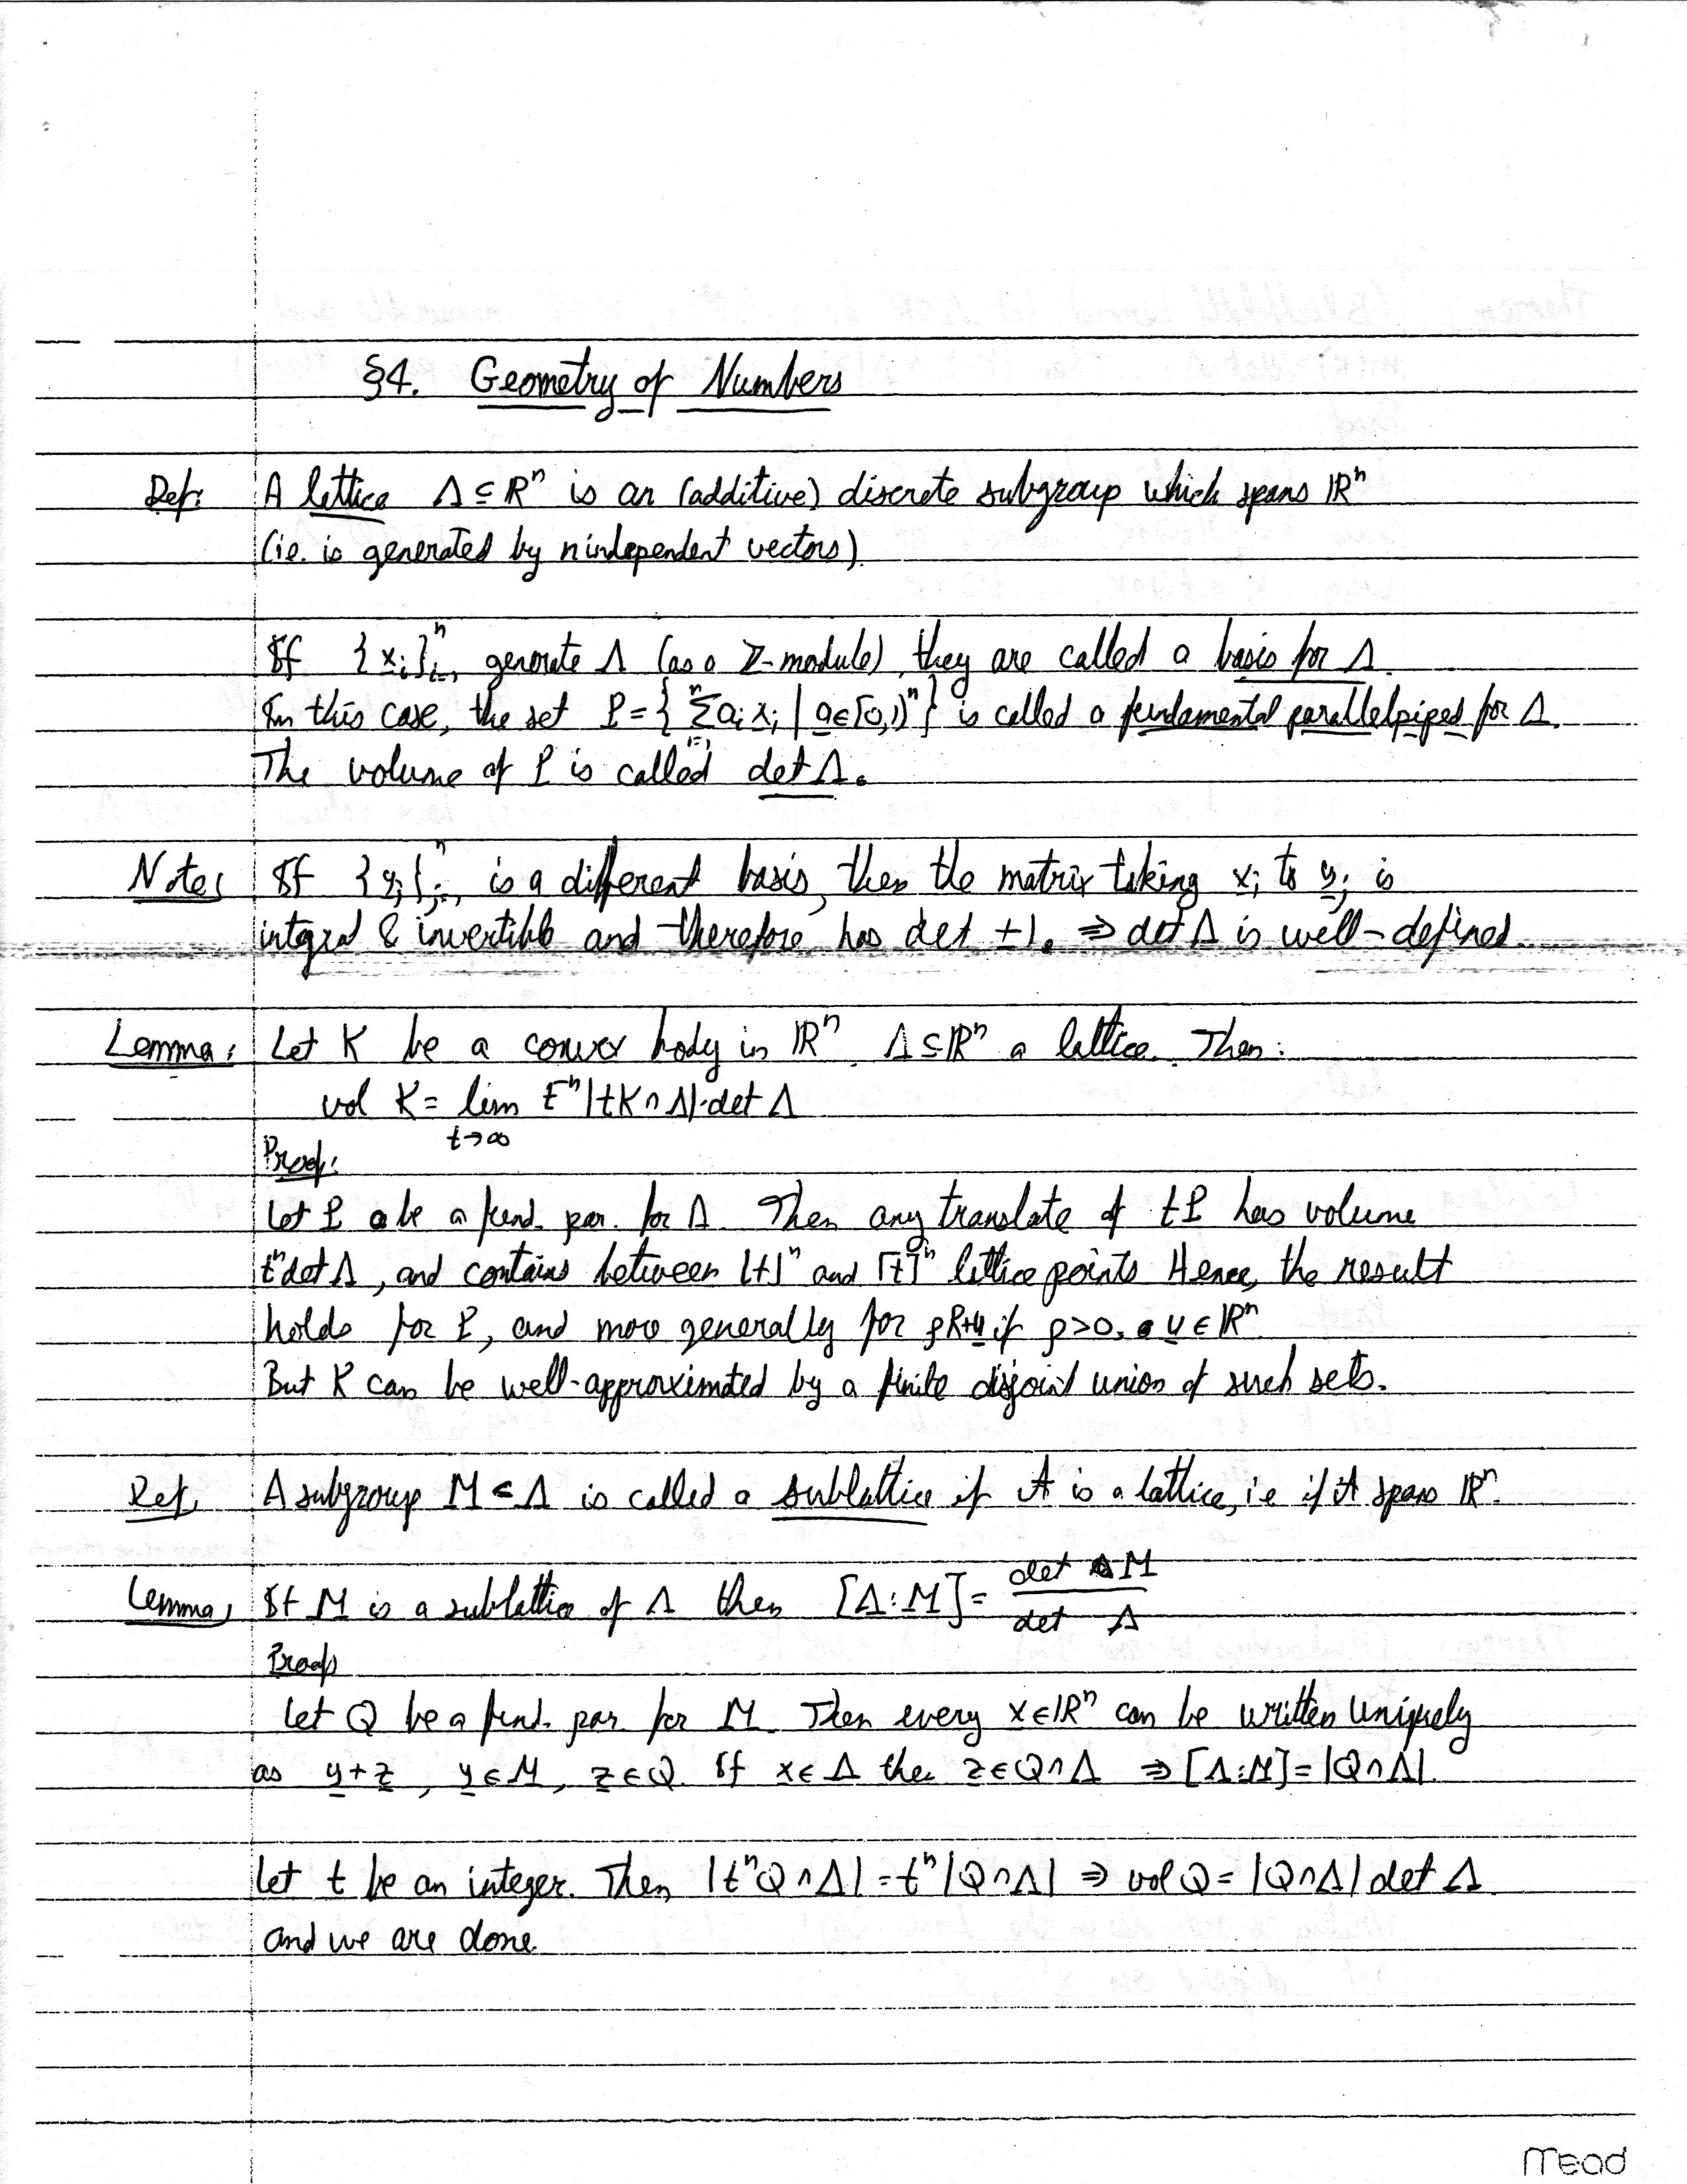 §4. Geometry of Numbers
Def: A lattice Λ ⊆ ℝⁿ is an (additive) discrete subgroup which spans ℝⁿ
(i.e. is generated by n independent vectors).
If {xᵢ}ⁿᵢ₌₁ generate Λ (as a ℤ-module), they are called a basis for Λ.
In this case, the set P = { ⁿΣᵢ₌₁ aᵢ xᵢ | a ∈ [0,1)ⁿ } is called a fundamental parallelpiped for Λ.
The volume of P is called det Λ.
Note: If {yⱼ}ⁿⱼ₌₁ is a different basis, then the matrix taking xᵢ to yⱼ is
integral & invertible and therefore has det ±1. ⇒ det Λ is well-defined.
Lemma: Let K be a convex body in ℝⁿ, Λ ⊆ ℝⁿ a lattice. Then:
vol K = lim t⁻ⁿ |tK ∩ Λ| · det Λ
t→∞
Proof:
Let P be a fund. par. for Λ. Then any translate of tP has volume
tⁿ det Λ, and contains between ⌊t⌋ⁿ and ⌈t⌉ⁿ lattice points. Hence, the result
holds for P, and more generally for ρP+u if ρ>0, u ∈ ℝⁿ.
But K can be well-approximated by a finite disjoint union of such sets.
Def: A subgroup M < Λ is called a sublattice if it is a lattice, i.e if it spans ℝⁿ.
Lemma: If M is a sublattice of Λ then [Λ:M] = det M / det Λ
Proof:
Let Q be a fund. par. for M. Then every x ∈ ℝⁿ can be written uniquely
as y + z, y ∈ M, z ∈ Q. If x ∈ Λ then z ∈ Q ∩ Λ ⇒ [Λ:M] = |Q ∩ Λ|.
Let t be an integer. Then |tⁿQ ∩ Λ| = tⁿ|Q ∩ Λ| ⇒ vol Q = |Q ∩ Λ| det Λ
and we are done.
Mead